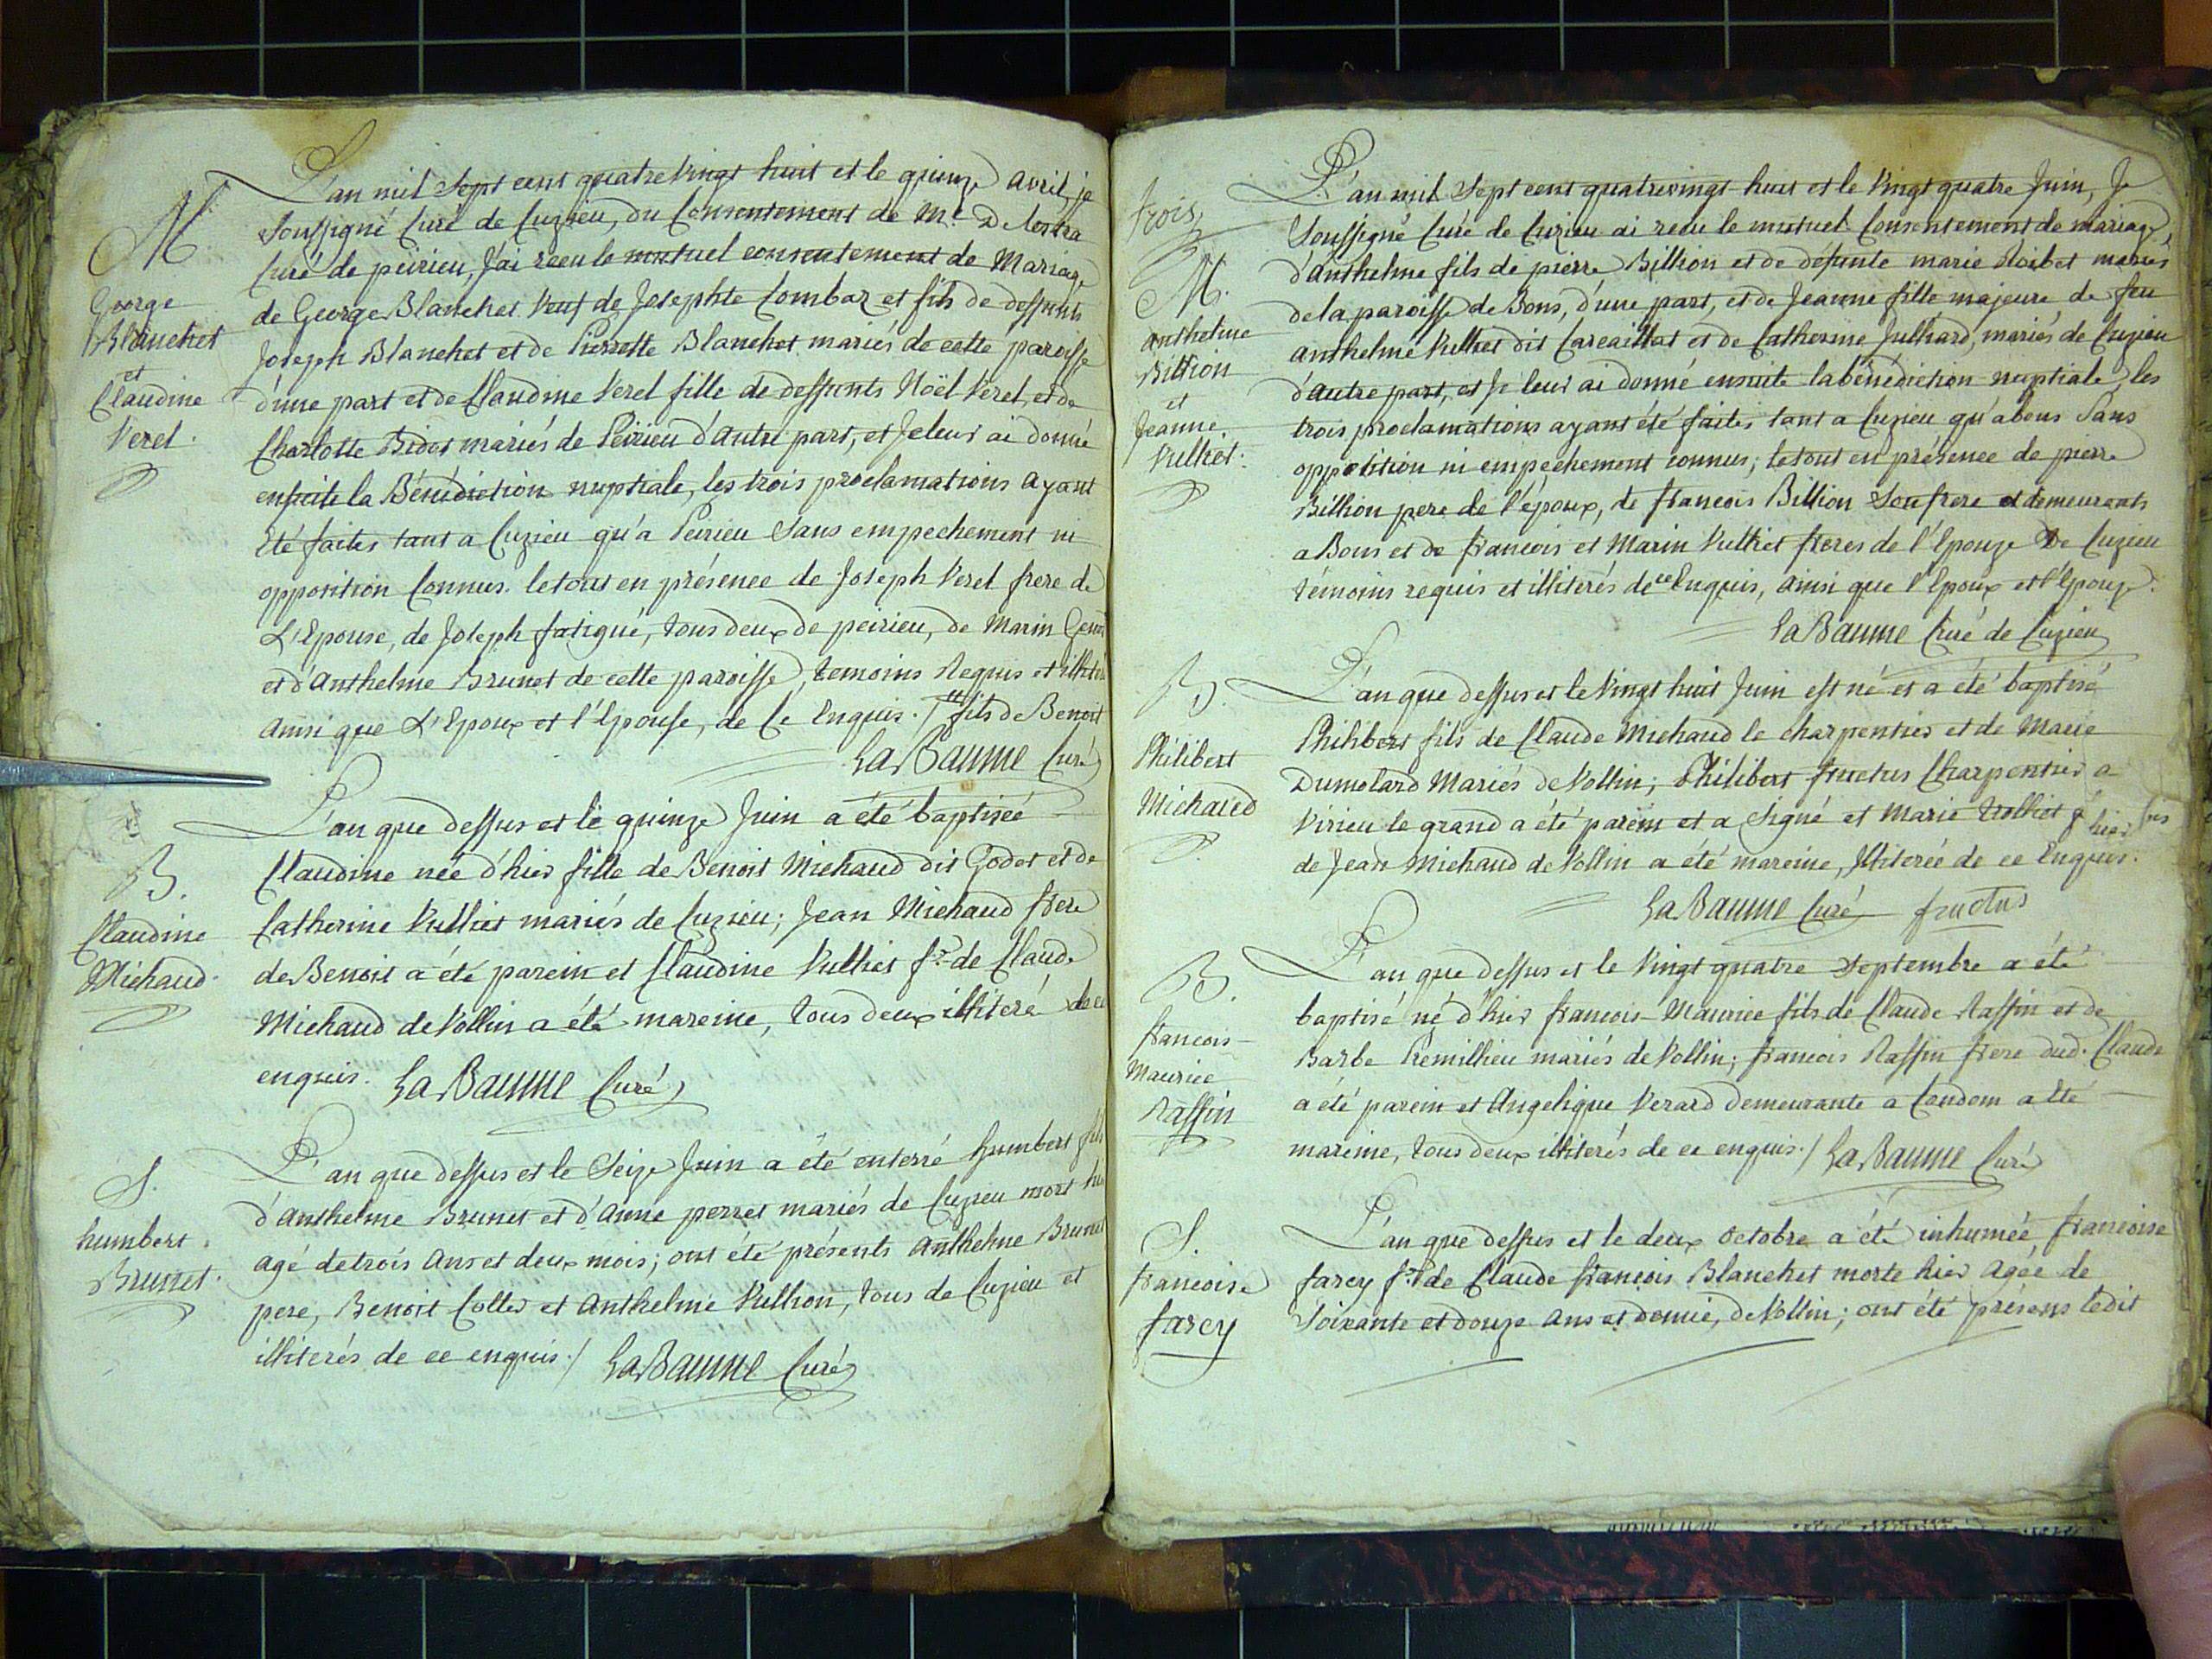 L'an mil sept cent quatre vingt huit et le quinze avril, je
soussigné Curé de Cuzieu, du Consentement de Mre
Curé de peirieu, j'ai receu le mutuel consentement de Mariage
de George Blanchet veuf de Josephte Combaz et fils de deffunts
Joseph Blanchet et de Pierrette Blanchet mariés de cette paroisse
d'une part et de Claudine Verel fille de deffunts Noël Verel, et de
Charlotte Bidot mariés de Peirieu d'autre part, et Je leur ai donné
ensuite la Bénédiction nuptiale, les trois proclamations ayant
Eté faites tant a Cuzieu qu'a Peirieu Sans empechement ni
opposition Connus. le tout en présence de Joseph Verel frere de
L'Epouse, de Joseph fatigué, tous deux de peirieu, de Marin
et d'Anthelme Brunet de cette paroisse, temoins Requis et
ainsi que L'Epoux et l'Epouse, de Ce Enquis. / fils de Benoit
La Baume Curé
M
George
Blanchet
et
Claudine
Verel.
L'an que dessus et le quinze Juin a été baptiseé
Claudine née d'hier fille de Benoit Michaud dit Godet et de
Catherine Vulliet mariés de Cuzieu; Jean Michaud frere
de Benoit a été parein et Claudine Vulliet fe. de Claude
Michaud de Vollin a été mareine, tous deux illiteré de ce
enquis. La Baume Curé
B.
Claudine
Michaud.
L'an que dessus et le Seize Juin a été enterré humbert fils
d'Anthelme Brunet et d'Anne perret mariés de Cuzieu mort
agé de trois ans et deux mois; ont été présents Anthelme Brunet
pere, Benoit Collet et Anthelme Vullion, tous de Cuzieu et
illiterés de ce enquis. / La Baume Curé
S.
humbert
Brunet.
trois
L'an mil Sept cent quatrevingt huit et le Vingt quatre Juin, Je
Soussigné Curé de Cuzieu ai recu le mutuel Consentement de mariage,
d'anthelme fils de pierre Billion et de défunte marie mariés
de la paroisse de Bons, d'une part, et de Jeanne fille majeure de feu
anthelme Vulliet dit Carcaillat et de Catherine Julliard, mariés de Cuzieu
d'autre part, et Je leur ai donné ensuite la bénédiction nuptiale, les
trois proclamations ayant été faites tant a Cuzieu qu'a bons Sans
opposition ni empechement connus; le tout en présence de pierre
Billion pere de l'époux, de francois Billion Son frere et demeurants
a Bons et de francois et Marin Vulliet freres de l'Epouze De Cuzieu
témoins requis et illiterés de ce Enquis, ainsi que l'Epoux et l'Epouze.
La Baume Curé de Cuzieu
M.
anthelme
Billion
et
Jeanne
Vulliet.
L'an que dessus et le Vingt huit Juin est né et a été baptisé
Philibert fils de Claude Michaud le charpentier et de Marie
Dumolard Mariés de Vollin; Philibert fructus Charpentier a
Virieu le grand a été parein et a Signé et Marie
de Jean Michaud de Vollin a été mareine, Illiterée de ce Enquis.
La Baume Curé fructus
B.
Philibert
Michaud
L'an que dessus et le Vingt quatre Septembre a été
baptisé né d'hier francois-Maurice fils de Claude Raffin et de
Barbe Premillieu mariés de Vollin; francois Raffin frere dud. Claude
a été parein et Angelique Verard Demeurante a Condom a Eté
mareine, tous deux illiterés de ce enquis. / La Baume Curé
B.
francois-
Maurice
Raffin
L'an que dessus et le deux Octobre a été inhumée francoise
farcy fe. de Claude francois Blanchet morte hier agée de
Soixante et douze ans et demie, de Vollin; ont été présens ledit
S.
francoise
farcy